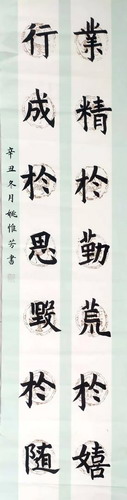 業精於勤荒於嬉
行成於思毀於随
辛丑冬月姚惟芳書